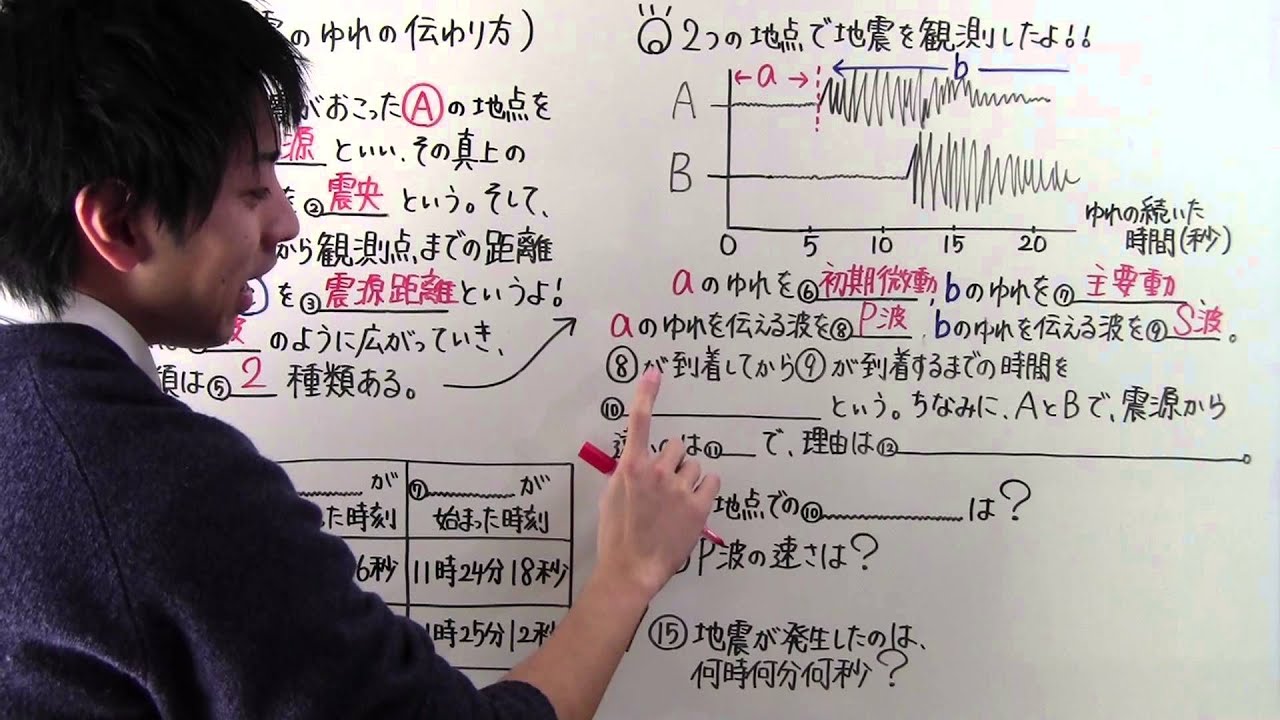 のゆれの伝わり方)
がおこったⒶの地点を
源といい、その真上の
②震央という。そして、
から観測点までの距離
を③震源距離というよ!
のように広がっていき、
類は⑤2種類ある。
2つの地点で地震を観測したよ!!
a b
A
B
0 5 10 15 20
ゆれの続いた
時間(秒)
aのゆれを⑥初期微動、bのゆれを⑦主要動
aのゆれを伝える波を⑧P波、bのゆれを伝える波を⑨S波。
⑧が到着してから⑨が到着するまでの時間を
⑩という。ちなみに、AとBで、震源から
は⑪で、理由は⑫。
地点での⑩は?
P波の速さは?
⑮地震が発生したのは、
何時何分何秒?
が ⑦が
た時刻 始まった時刻
6秒 11時24分18秒
時25分12秒